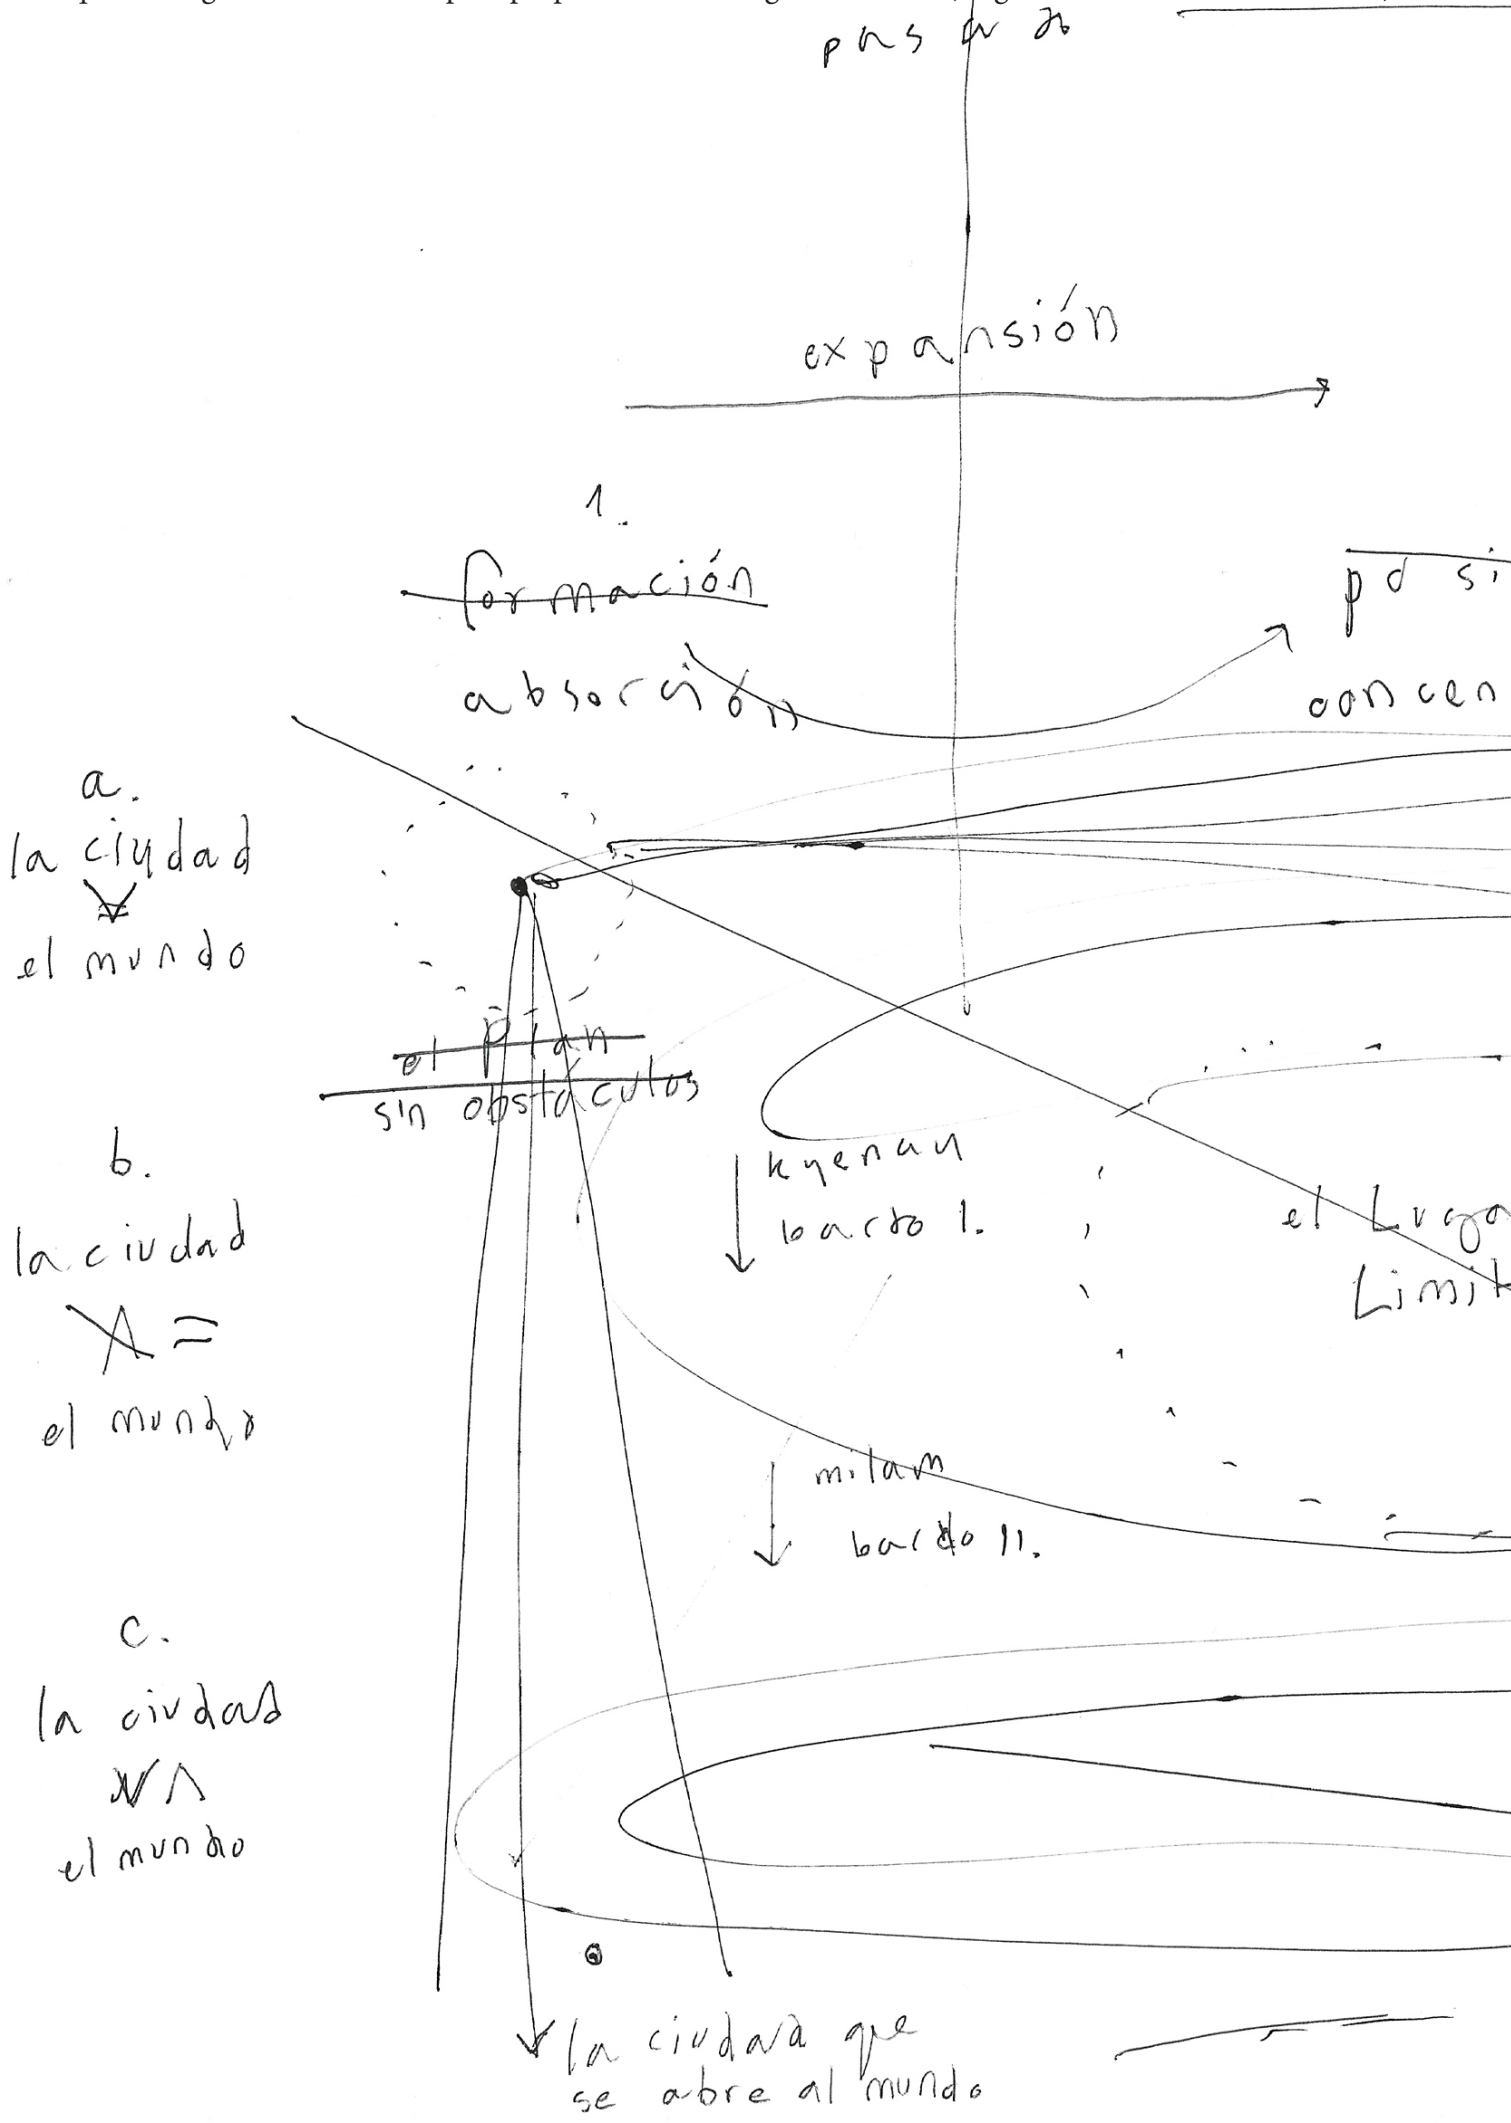 pasa
expansión
1.
formación
absorción
po si
concen
a.
la ciudad
el mundo
el plan
sin obstáculos
b.
la ciudad
=
el mundo
kyenay
bardo I.
el Luga
Limit
milam
bardo II.
c.
la ciudad
el mundo
la ciudad que
se abre al mundo